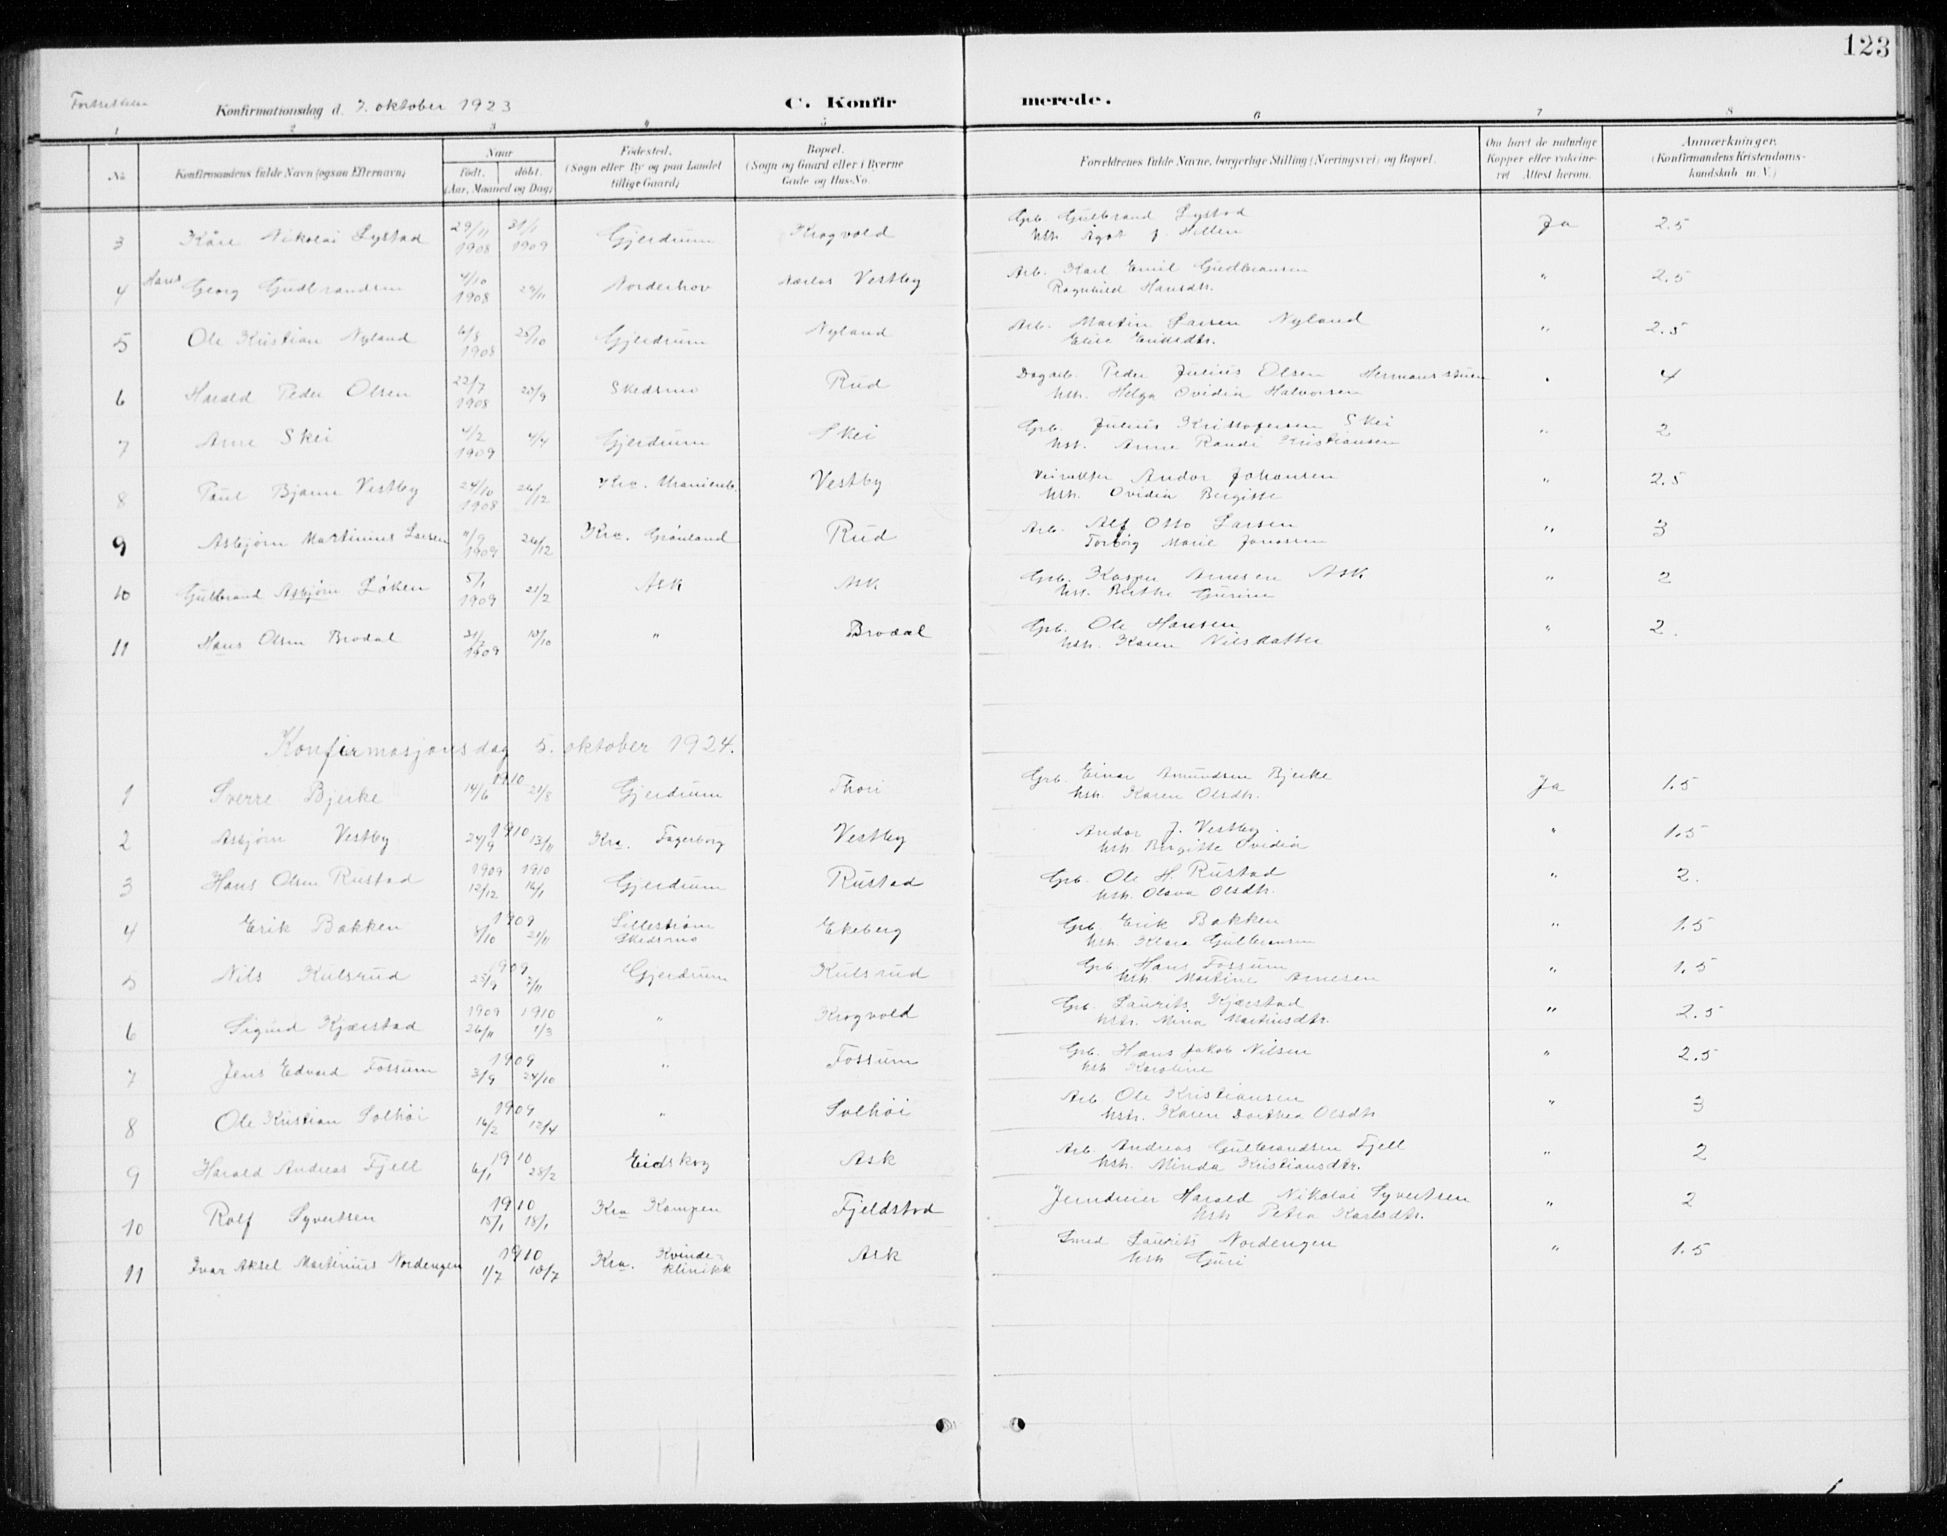 123
Fortsettelse
Konfirmationsdag d. 7. oktober 1923
C. Konfirmerede.
1 2 3 4 5 6 7 8
No
Konfirmandens fulde Navn (ogsaa Efternavn)
Naar
født. døbt.
(Aar, Maaned og Dag)
Fødested.
(Sogn eller By og paa Landet
tillige Gaard)
Bopæl.
(Sogn og Gaard eller i Byerne
Gade og Hus-No.
Forældrenes fulde Navne, borgerlige Stilling (Næringsvei) og Bopæl.
Om havt de naturlige
Kopper eller vakcine-
ret. Attest herom.
Anmærkninger.
(Konfirmandens Kristendoms-
kundskab m. V.)
3 Kåre Nikolai Lystad 29/11 1908 31/1 1909 Gjerdrum Krogvold Grb. Gulbrand Lystad Hst. Ågot J. Hellen Ja 2.5
4 Hans Georg Gudbrandsen 4/10 1908 29/11 Norderhov Aarlas Vestby Arb. Karl Emil Gudbransen Ragnhild Hansdtr. " 2.5
5 Ole Kristian Nyland 6/8 1908 25/10 Gjerdrum Nyland Arb. Martin Larsen Nyland Elise Eriksdtr. " 2.5
6 Harald Peder Olsen 22/7 1908 Skedsmo Rud Dagarb. Peder Julius Olsen Hermanstuen Hst. Helga Ovidia Halvorsen " 4
7 Arne Skei 4/2 1909 4/4 Gjerdrum Skei Grb. Julius Kristofersen Skei Hst. Anne Randi Kristiansen " 2
8 Paul Bjarne Vestby 24/10 1908 26/12 Kra. Uranienb. Vestby Veivokter Andor Johansen Hst. Ovidia Bergitte " 2.5
9 Asbjørn Martinius Larsen 11/9 1909 26/12 Kra. Grønland Rud Arb. Alf Otto Larsen Torborg Marie Jonassen " 3
10 Gulbrand Asbjørn Løken 5/1 1909 21/2 Ask Ask Grb. Kasper Arnesen Ask Hst. Berthe Gurine " 2
11 Hans Olsen Brodal 1909 10/10 " Brodal Grb. Ole Hansen Hst. Karen Nilsdatter " 2.
Konfirmasjonsdag 5. oktober 1924.
1 Sverre Bjerke 1910 14/6 21/8 Gjerdrum Thori Grb. Einar Amundsen Bjerke Hst. Karen Olsdtr. Ja 1.5
2 Asbjørn Vestby 1910 24/9 13/11 Kra. Fagerborg Vestby Andor J. Vestby. Hst. Bergitte Ovidia " 1.5
3 Hans Olsen Rustad 1909 12/12 1910 16/1 Gjerdrum Rustad Grb. Ole H. Rustad Hst. Olava Olsdtr. " 2.
4 Erik Bakken 1909 8/10 21/11 Lillestrøm Skedsmo Ekeberg Grb. Erik Bakken Hst. Klara Gulbransen " 1.5
5 Nils Kulsrud 1909 25/9 7/11 Gjerdrum Kulsrud Grb. Hans Fossum Hst. Martine Arnesen " 1.5
6 Sigurd Kjærstad 1909 26/11 1910 1/3 " Krogvold Grb. Laurits Kjærstad Hstr. Mina Martinsdtr. " 2.5
7 Jens Edvard Fossum 1909 3/9 24/10 " Fossum Grb. Hans Jakob Nilsen Hst Karoline " 2.5
8 Ole Kristian Solhøi 1909 16/2 12/4 " Solhøi Arb Ole Kristiansen Hstr. Karen Dorthea Olsdtr " 3
9 Harald Andreas Fjell 1910 6/1 28/2 Eidskog Ask Arb. Andreas Gulbrandsen Fjell Hst. Minda Kristiansdtr. " 2
10 Rolf Syvertsen 1910 15/1 18/1 Kra Kampen Fjeldstad Jerndreier Harald Nikolai Syvertsen Hst. Petra Karlsdtr. " 2
11 Ivar Aksel Martinius Nordengen 1910 1/7 10/7 Kra. Kvinde-klinikk Ask Smed Laurits Nordengen Hst Guri " 1.5